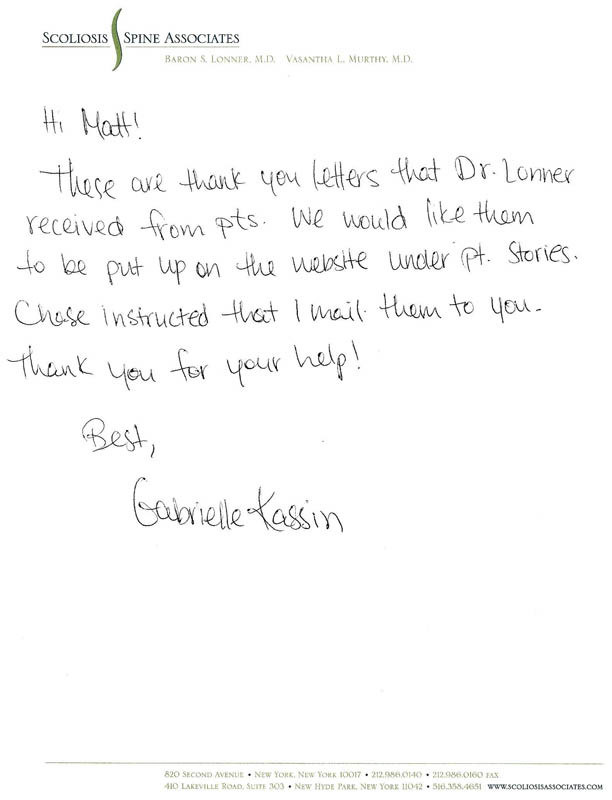 SCOLIOSIS SPINE ASSOCIATES
BARON S. LONNER, M.D. VASANTHA L. MURTHY, M.D.
Hi Matt!
These are thank you letters that Dr. Lonner
received from pts. We would like them
to be put up on the website under pt. stories.
Chase instructed that I mail them to you.
Thank you for your help!
Best,
Gabrielle Kassin
820 SECOND AVENUE • NEW YORK, NEW YORK 10017 • 212.986.0140 • 212.986.0160 FAX
410 LAKEVILLE ROAD, SUITE 303 • NEW HYDE PARK, NEW YORK 11042 • 516.358.4651 WWW.SCOLIOSISASSOCIATES.COM